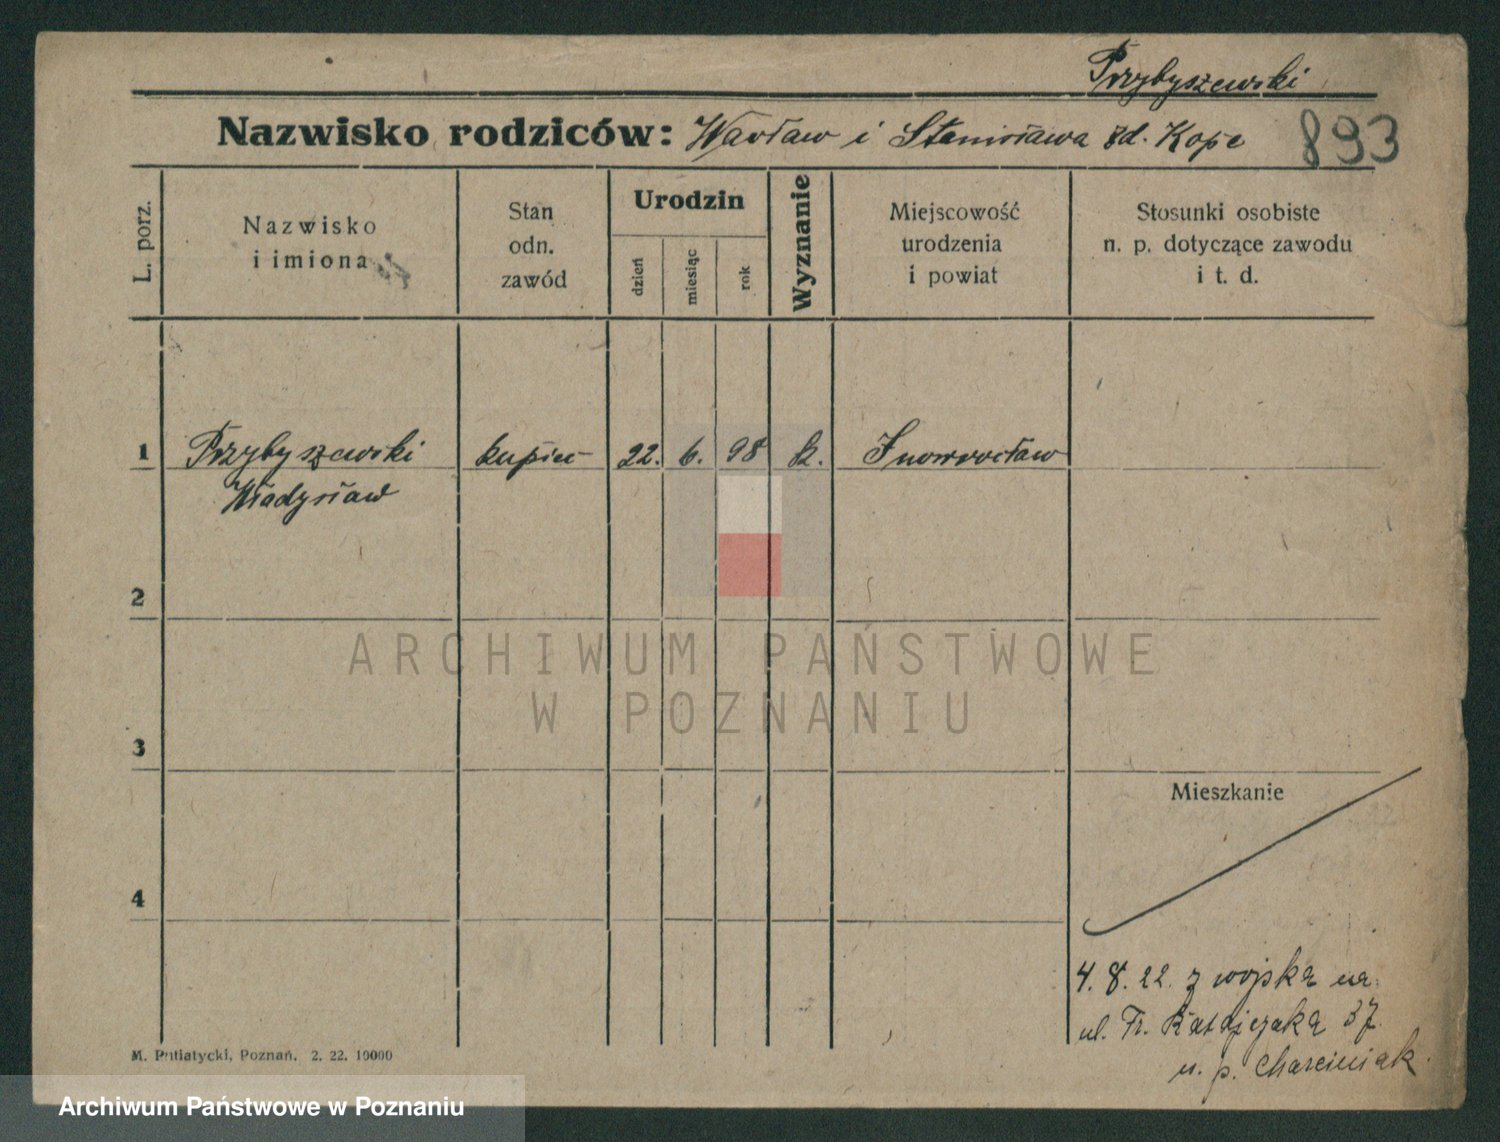 Przybyszewski
Nazwisko rodziców: Wacław i Stanisława zd. Kope 893
L. porz.
Nazwisko
i imiona
Stan
odn.
zawód
Urodzin
dzień
miesiąc
rok
Wyznanie
Miejscowość
urodzenia
i powiat
Stosunki osobiste
n. p. dotyczące zawodu
i t. d.
1 Przybyszewski kupiec 22. 6. 98 k. Inowrocław
Władysław
2
ARCHIWUM PAŃSTWOWE
W POZNANIU
3
Mieszkanie
4
4. 8. 22. z wojska na
ul. Fr. Ratajczaka 37
u. p. Marciniak
M. Putiatycki, Poznań. 2. 22. 10000
Archiwum Państwowe w Poznaniu